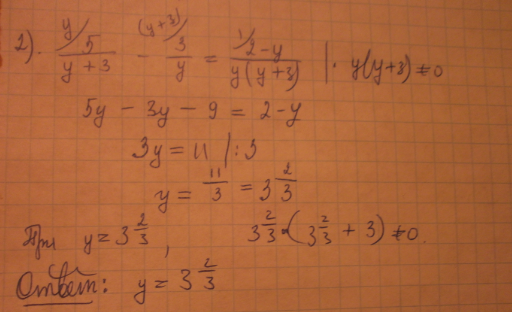 2). y/ 5/(y+3) - (y+3)/ 3/y = 1/ (2-y)/(y(y+3)) | · y(y+3) ≠ 0
5y - 3y - 9 = 2 - y
3y = 11 | : 3
y = 11/3 = 3 2/3
При y = 3 2/3, 3 2/3 · (3 2/3 + 3) ≠ 0.
Ответ: y = 3 2/3